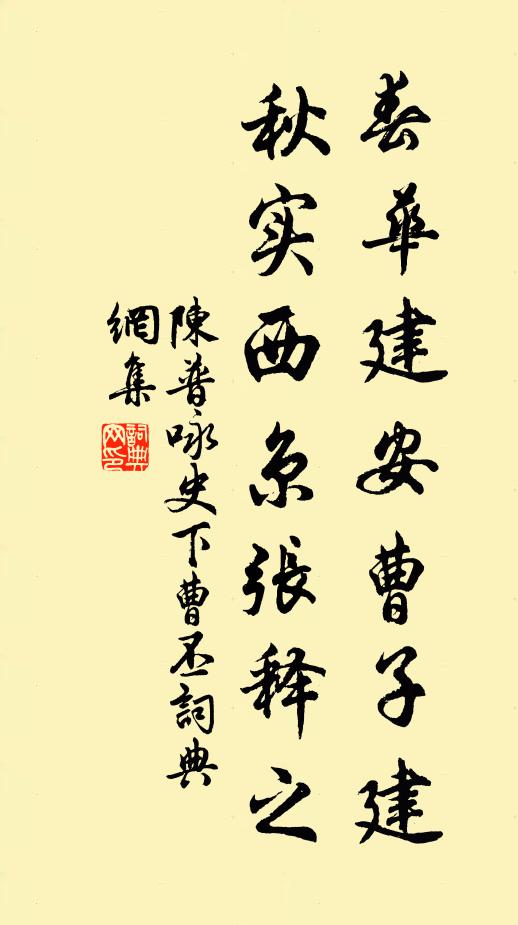 春華建安曹子建
秋实西京張释之
陳普咏史下曹丕詞典
網集
詞典
网印